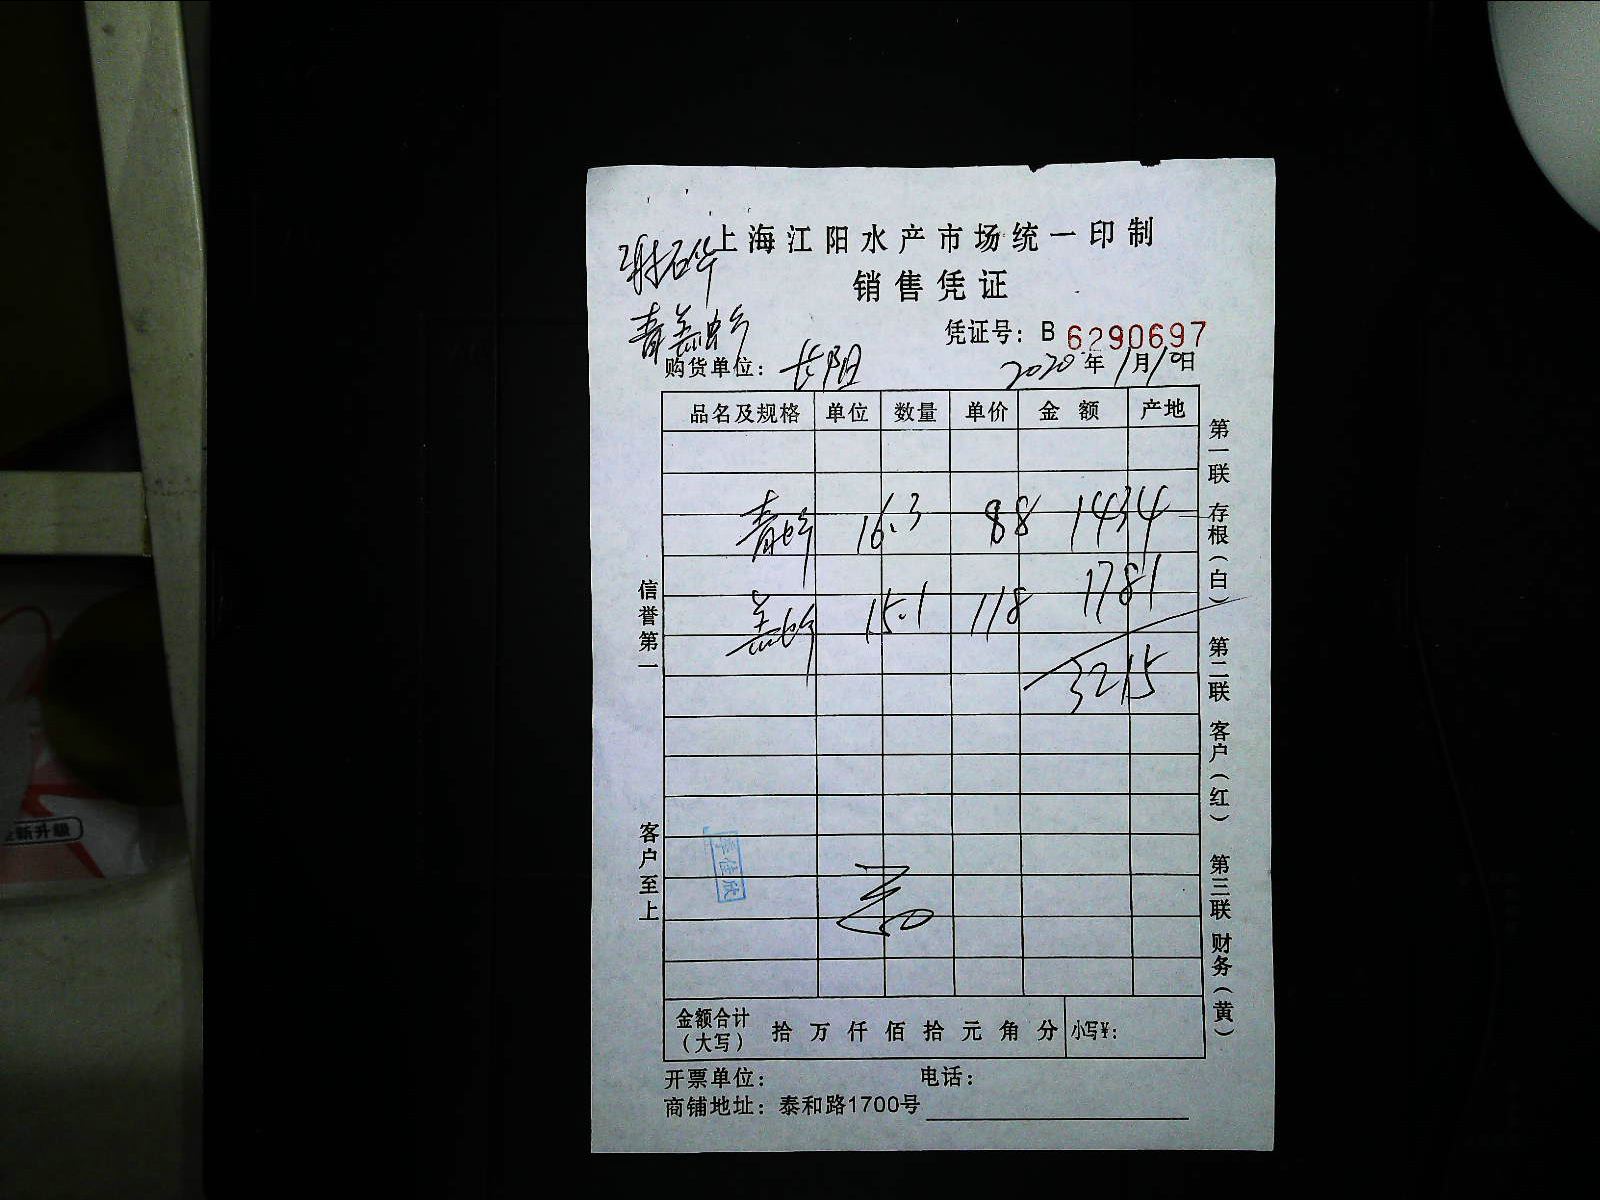 上海江阳水产市场统一印制
谢石华
销售凭证
凭证号：B 6290697
购货单位：长阳
2020年1月10日
品名及规格 单位 数量 单价 金额 产地
青 16.3 88 1434
盖 15.1 118 1781
3215
信誉第一
客户至上
第一联 存根（白）
第二联 客户（红）
第三联 财务（黄）
金额合计（大写） 拾 万 仟 佰 拾 元 角 分 小写¥：
开票单位： 电话：
商铺地址：泰和路1700号
新升级